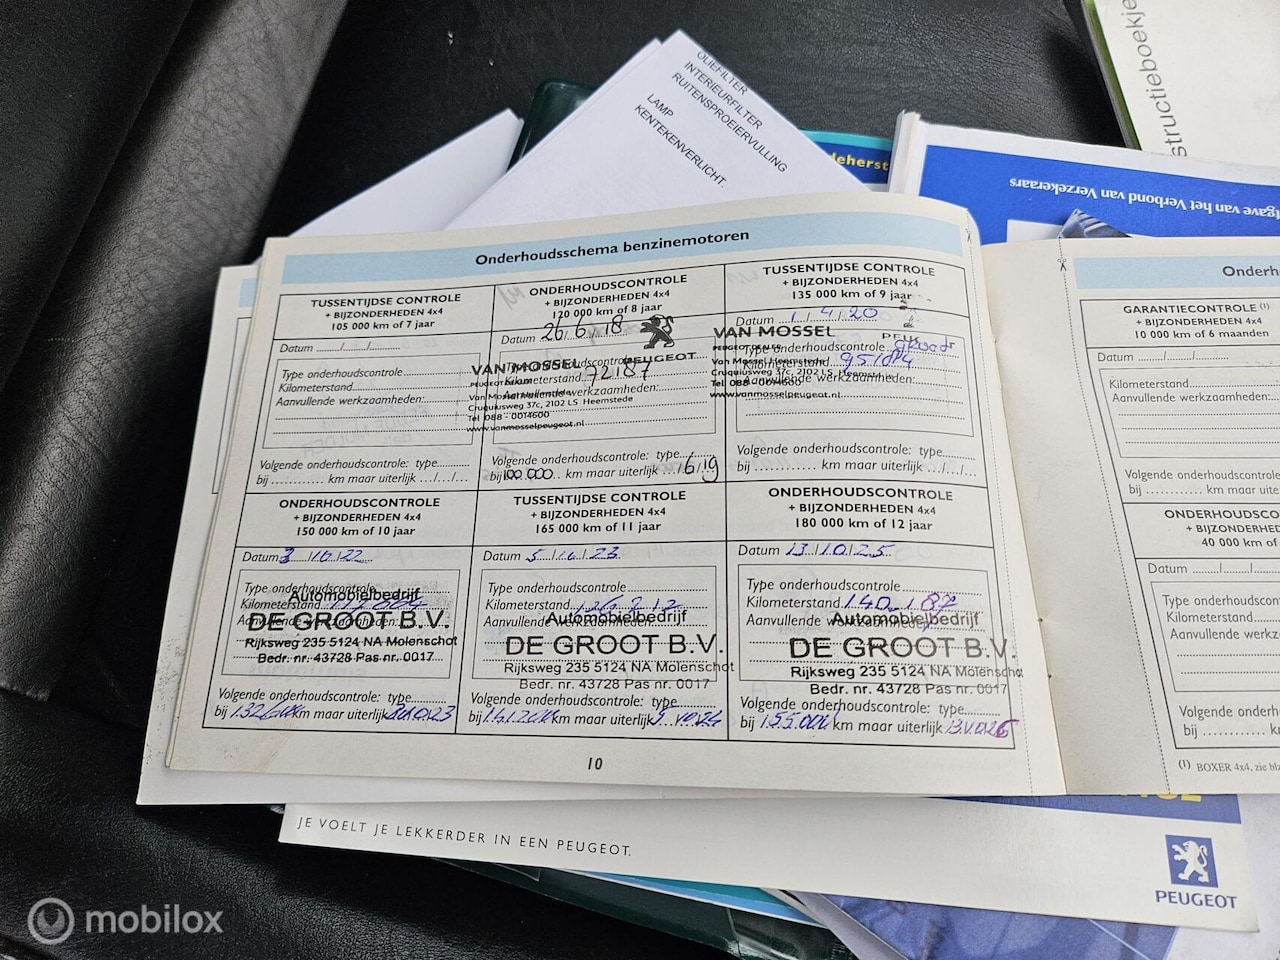 OLIEFILTER
INTERIEURFILTER
RUITENSPROEIERVULLING
LAMP
KENTEKENVERLICHT.
structieboekje
leherst
tgave van het Verbond van Verzekeraars
Onderhoudsschema benzinemotoren
TUSSENTIJDSE CONTROLE
+ BIJZONDERHEDEN 4x4
105 000 km of 7 jaar
Datum ....../....../......
Type onderhoudscontrole
Kilometerstand
Aanvullende werkzaamheden:
Volgende onderhoudscontrole: type
bij ............ km maar uiterlijk .../.../...
ONDERHOUDSCONTROLE
+ BIJZONDERHEDEN 4x4
120 000 km of 8 jaar
Datum 26/6/18
VAN MOSSEL PEUGEOT
Kilometerstand 72187
Aanvullende werkzaamheden:
Van Mossel Heemstede
Cruquiusweg 37c, 2102 LS Heemstede
Tel 088 - 0014600
www.vanmosselpeugeot.nl
Volgende onderhoudscontrole: type
bij 100.000 km maar uiterlijk /6/19
TUSSENTIJDSE CONTROLE
+ BIJZONDERHEDEN 4x4
135 000 km of 9 jaar
Datum 1/4/20
VAN MOSSEL
PEUGEOT DEALER
Type onderhoudscontrole
Van Mossel Heemstede
Kilometerstand
Cruquiusweg 37c, 2102 LS Heemstede
Aanvullende werkzaamheden:
Tel 088 - 0014600
www.vanmosselpeugeot.nl
Volgende onderhoudscontrole: type
bij ............ km maar uiterlijk .../.../...
ONDERHOUDSCONTROLE
+ BIJZONDERHEDEN 4x4
150 000 km of 10 jaar
Datum 3/10/22
Type onderhoudscontrole
Automobielbedrijf
Kilometerstand
DE GROOT B.V.
Rijksweg 235 5124 NA Molenschot
Bedr. nr. 43728 Pas nr. 0017
Volgende onderhoudscontrole: type
bij km maar uiterlijk
TUSSENTIJDSE CONTROLE
+ BIJZONDERHEDEN 4x4
165 000 km of 11 jaar
Datum
Type onderhoudscontrole
Kilometerstand 126712
Automobielbedrijf
DE GROOT B.V.
Rijksweg 235 5124 NA Molenschot
Bedr. nr. 43728 Pas nr. 0017
Volgende onderhoudscontrole: type
bij km maar uiterlijk
ONDERHOUDSCONTROLE
+ BIJZONDERHEDEN 4x4
180 000 km of 12 jaar
Datum 13/10/25
Type onderhoudscontrole
Kilometerstand 140.187
Automobielbedrijf
DE GROOT B.V.
Rijksweg 235 5124 NA Molenschot
Bedr. nr. 43728 Pas nr. 0017
Volgende onderhoudscontrole: type
bij 155.000 km maar uiterlijk
10
Onderh
GARANTIECONTROLE (1)
+ BIJZONDERHEDEN 4x4
10 000 km of 6 maanden
Datum
Kilometerstand
Aanvullende werkzaamheden:
Volgende onderhoudscontrole
bij ............ km maar uiter
ONDERHOUDSCO
+ BIJZONDERHE
40 000 km
Datum
Type onderhoudsco
Kilometerstand
Aanvullende werkz
Volgende onderhou
bij ............ km
(1) BOXER 4x4, zie bla
JE VOELT JE LEKKERDER IN EEN PEUGEOT.
PEUGEOT
mobilox